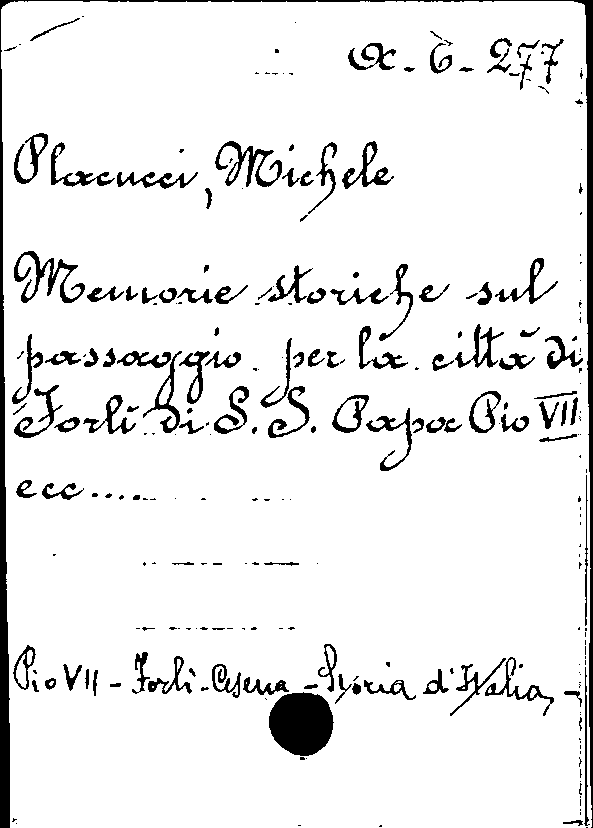 α-6-277
Placucci, Michele
Memorie storiche sul
passaggio per la città di
Forlì di S. S. Papa Pio VII
ecc....
Pio VII - Forlì - Cesena - Storia d'Italia, -